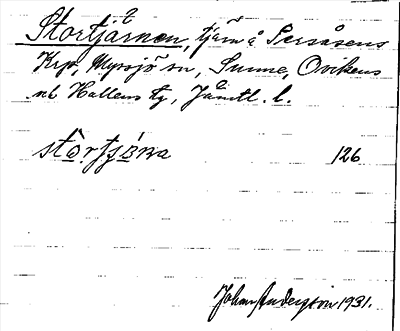 Stortjärnen, tjärn å Persåsens
Krp, Myssjö sn, Sunne, Ovikens
o. Hallens tg, Jämtl. l.
stortjǫna 126
Johan Anderzon 1931.